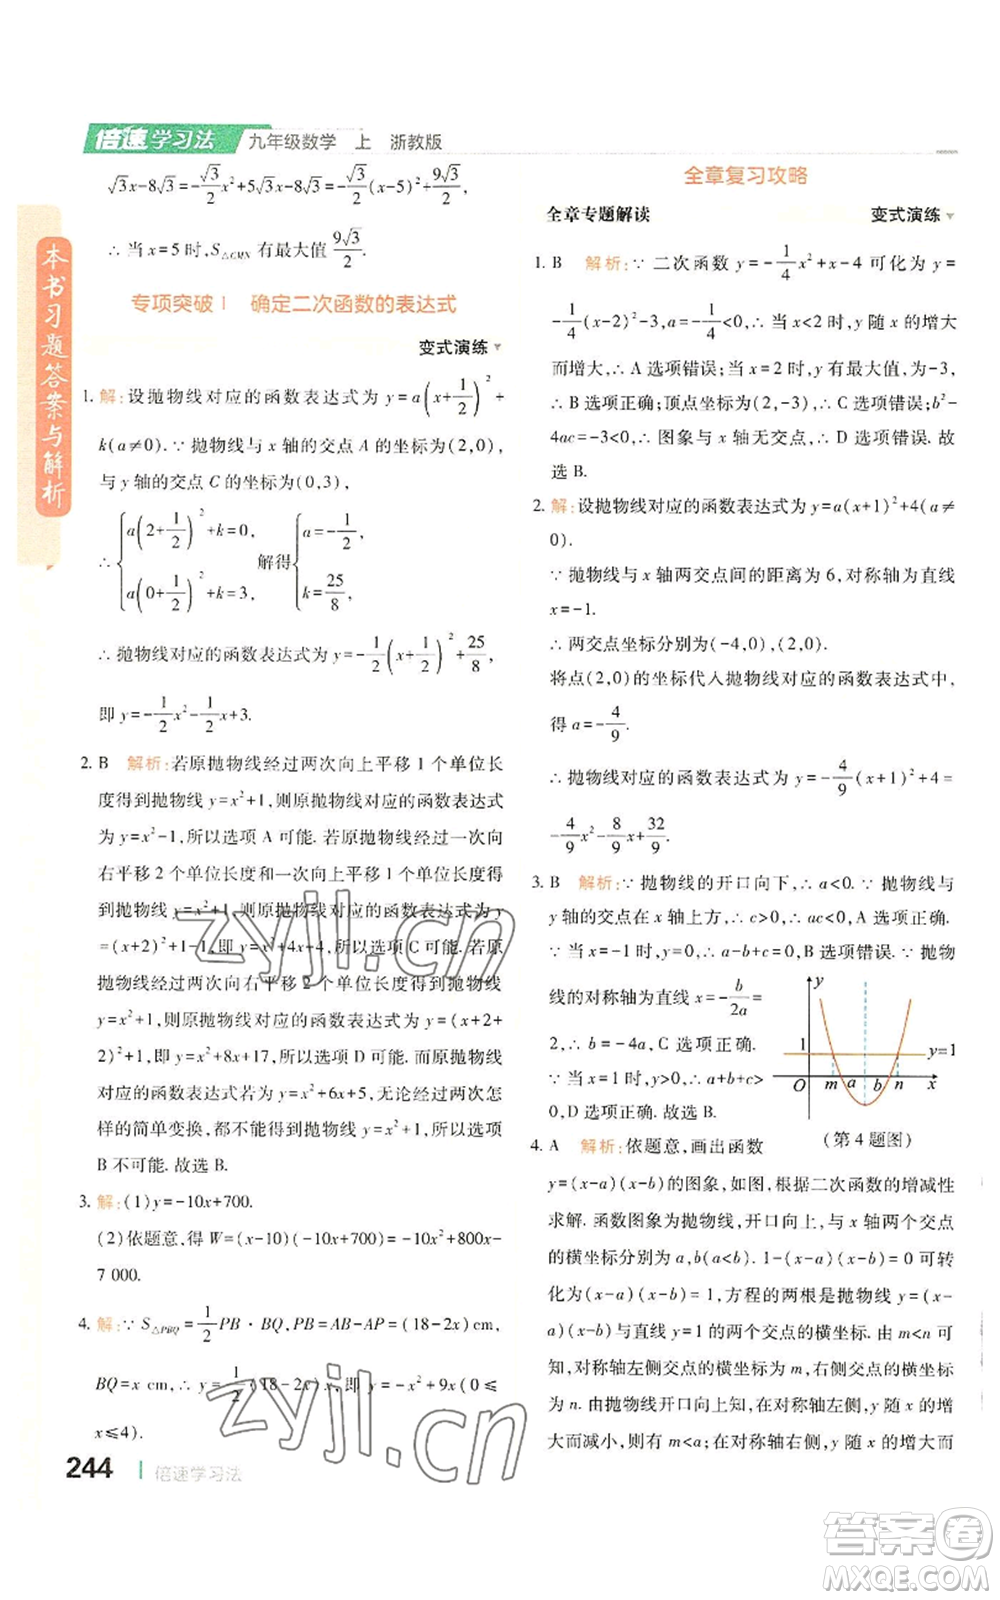 倍速学习法 九年级数学 上 浙教版
√3x-8√3=-√3/2x²+5√3x-8√3=-√3/2(x-5)²+9√3/2,
∴ 当 x=5 时,S△CMN 有最大值 9√3/2.
专项突破1 确定二次函数的表达式
变式演练
1. 解:设抛物线对应的函数表达式为 y=a(x+1/2)²+
k(a≠0).∵ 抛物线与 x 轴的交点 A 的坐标为(2,0),
与 y 轴的交点 C 的坐标为(0,3),
∴ {a(2+1/2)²+k=0, a(0+1/2)²+k=3, 解得 {a=-1/2, k=25/8,
∴ 抛物线对应的函数表达式为 y=-1/2(x+1/2)²+25/8,
即 y=-1/2x²-1/2x+3.
2. B 解析:若原抛物线经过两次向上平移 1 个单位长
度得到抛物线 y=x²+1,则原抛物线对应的函数表达式
为 y=x²-1,所以选项 A 可能. 若原抛物线经过一次向
右平移 2 个单位长度和一次向上平移 1 个单位长度得
到抛物线 y=x²+1,则原抛物线对应的函数表达式为 y
=(x+2)²+1-1,即 y=x²+4x+4,所以选项 C 可能. 若原
抛物线经过两次向右平移 2 个单位长度得到抛物线 y
=x²+1,则原抛物线对应的函数表达式为 y=(x+2+
2)²+1,即 y=x²+8x+17,所以选项 D 可能. 而原抛物线
对应的函数表达式若为 y=x²+6x+5,无论经过两次怎样
的简单变换,都不能得到抛物线 y=x²+1,所以选项
B 不可能. 故选 B.
3. 解:(1)y=-10x+700.
(2)依题意,得 W=(x-10)(-10x+700)=-10x²+800x-
7 000.
4. 解:∵ S△PBQ=1/2PB·BQ,PB=AB-AP=(18-2x)cm,
BQ=x cm,∴ y=1/2(18-2x)x,即 y=-x²+9x(0≤
x≤4).
全章复习攻略
全章专题解读 变式演练
1. B 解析:∵ 二次函数 y=-1/4x²+x-4 可化为 y=
-1/4(x-2)²-3,a=-1/4<0,∴ 当 x<2 时,y 随 x 的增大
而增大,∴ A 选项错误;当 x=2 时,y 有最大值,为-3,
∴ B 选项正确;顶点坐标为(2,-3),C 选项错误;b²-
4ac=-3<0,∴ 图象与 x 轴无交点,∴ D 选项错误. 故
选 B.
2. 解:设抛物线对应的函数表达式为 y=a(x+1)²+4(a≠
0).
∵ 抛物线与 x 轴两交点间的距离为 6,对称轴为直线
x=-1.
∴ 两交点坐标分别为(-4,0),(2,0).
将点(2,0)的坐标代入抛物线对应的函数表达式中,
得 a=-4/9.
∴ 抛物线对应的函数表达式为 y=-4/9(x+1)²+4=
-4/9x²-8/9x+32/9.
3. B 解析:∵ 抛物线的开口向下,∴ a<0.∵ 抛物线与
y 轴的交点在 x 轴上方,∴ c>0,∴ ac<0,A 选项正确.
∵ 当 x=-1 时,y=0,∴ a-b+c=0,B 选项错误.∵ 抛物
线的对称轴为直线 x=-b/2a=
2,∴ b=-4a,C 选项正确.
∵ 当 x=1 时,y>0,∴ a+b+c>
0,D 选项正确. 故选 B.
y 1 y=1 O m a b n x
(第 4 题图)
4. A 解析:依题意,画出函数
y=(x-a)(x-b)的图象,如图. 根据二次函数的增减性
求解. 函数图象为抛物线,开口向上,与 x 轴两个交点
的横坐标分别为 a,b(a<b). 1-(x-a)(x-b)=0 可转
化为(x-a)(x-b)=1,方程的两根是抛物线 y=(x-a)
(x-b)与直线 y=1 的两个交点的横坐标. 由 m<n 可
知,对称轴左侧交点的横坐标为 m,右侧交点的横坐标
为 n. 由抛物线开口向上知,在对称轴左侧,y 随 x 的增
大而减小,则有 m<a;在对称轴右侧,y 随 x 的增大而
本书习题答案与解析
244 倍速学习法
zyjl.cn
zyjl.cn
答案圈
MXQE.COM